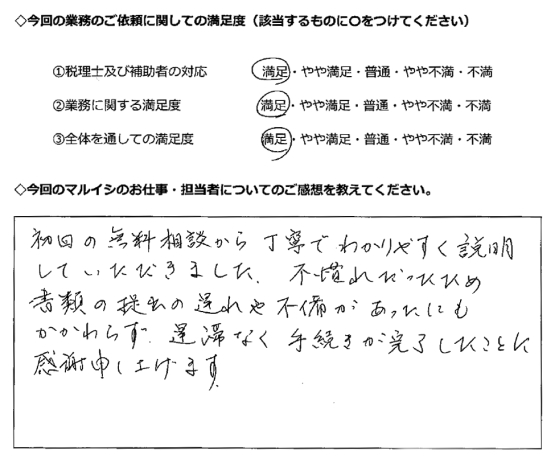 ◇今回の業務のご依頼に関しての満足度（該当するものに〇をつけてください）
①税理士及び補助者の対応　満足・やや満足・普通・やや不満・不満
②業務に関する満足度　満足・やや満足・普通・やや不満・不満
③全体を通しての満足度　満足・やや満足・普通・やや不満・不満
◇今回のマルイシのお仕事・担当者についてのご感想を教えてください。
初回の無料相談から丁寧でわかりやすく説明
していただきました。不慣れだったため
書類の提出の遅れや不備があったにも
かかわらず、遅滞なく手続きが完了したことに
感謝申し上げます。